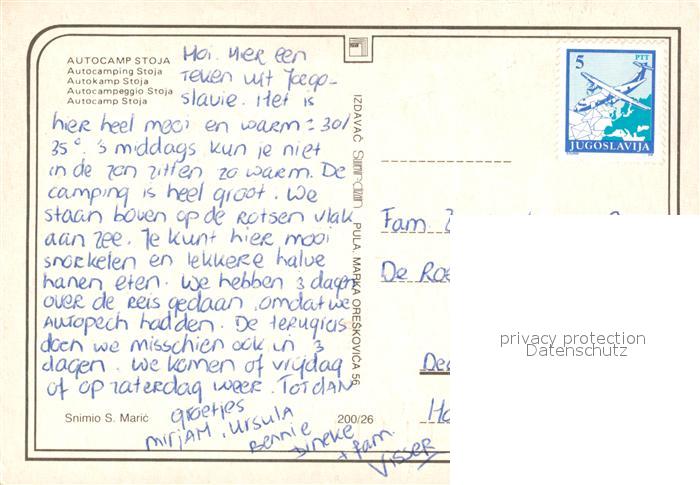 AUTOCAMP STOJA
Autocamping Stoja
Autokamp Stoja
Autocampeggio Stoja
Autocamp Stoja
Hoi. Hier een
teken uit Joego-
slavie. Het is
hier heel mooi en warm = 30/
35°. 's middags kun je niet
in de zon zitten zo warm. De
camping is heel groot. We
staan boven op de rotsen vlak
aan zee. Je kunt hier mooi
snorkelen en lekkere halve
hanen eten. We hebben 3 dagen
over de reis gedaan, omdat we
AUTOpech hadden. De terugreis
doen we misschien ook in 3
dagen. We komen of vrijdag
of op zaterdag weer. TOT DAN
groetjes
MIRJAM, URSULA
Bennie
Dineke
+ fam.
Visser
Snimio S. Marić
200/26
IZDAVAČ PULA, MARKA OREŠKOVIĆA 56
5
PTT
JUGOSLAVIJA
Fam.
De
privacy protection
Datenschutz